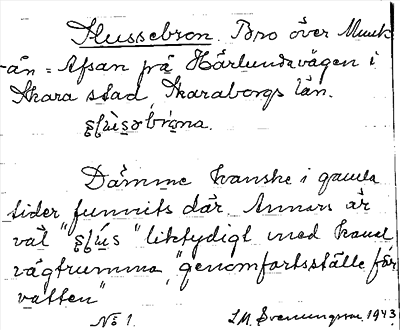 Slussebron. Bro över Munk
-ån = Afsan på Härlundavägen i
Skara stad, Skaraborgs län.
Dämme kanske i gamla
tider funnits där. Annars är
väl "s̨lú̀s" liktydigt med kanal
vägtrumma, "genomfartsställe för
vatten"
No 1. I.M. Svenungsson 1943.